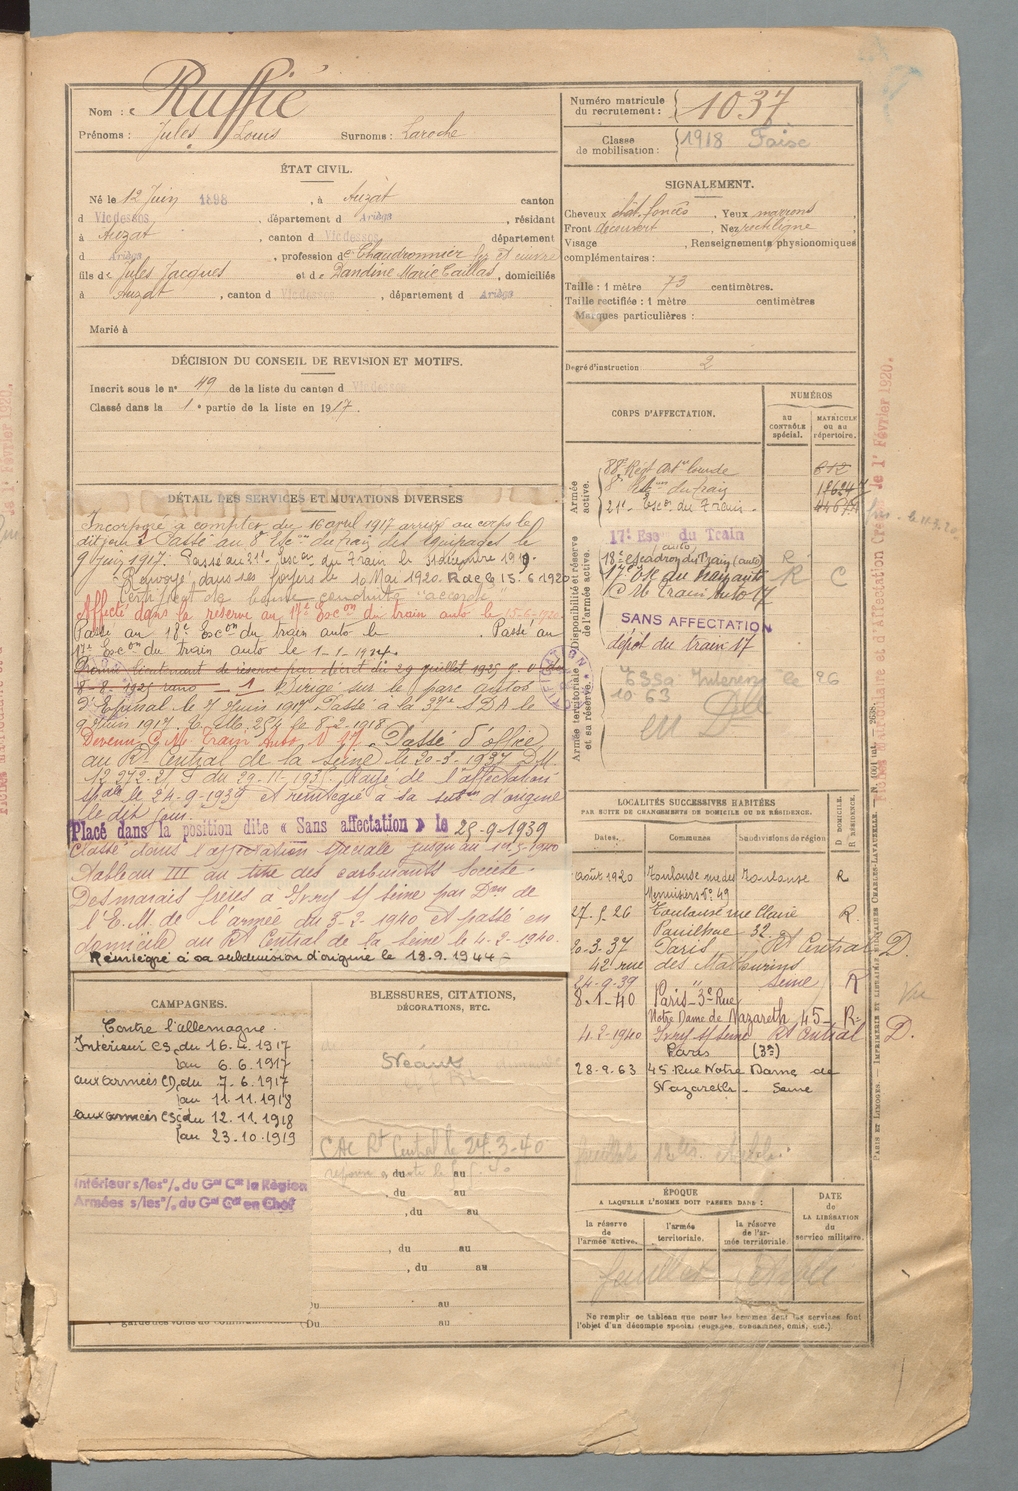 Nom : Ruffié
Prénoms : Jules Louis Surnoms : Laroche
ÉTAT CIVIL.
Né le 12 Juin 1898, à Auzat canton
d Vicdessos, département d Ariège, résidant
à Auzat, canton d Vicdessos département
d Ariège, profession de Chaudronnier fer et cuivre
fils de Jules Jacques et de Dandine Marie Caillas, domiciliés
à Auzat, canton d Vicdessos, département d Ariège
Marié à
DÉCISION DU CONSEIL DE REVISION ET MOTIFS.
Inscrit sous le n° 49 de la liste du canton d Vicdessos
Classé dans la 1e partie de la liste en 1917.
DÉTAIL DES SERVICES ET MUTATIONS DIVERSES
Incorporé à compter du 16 avril 1917 arrivé au corps le
dit jour. Passé au 8e Escon du train des équipages le
9 juin 1917. Passé au 21e Escon du Train le 31 décembre 1919.
Renvoyé dans ses foyers le 10 Mai 1920. R de C 15.6.1920
Certificat de bonne conduite "accordé"
Affecté dans la réserve au 17e Escon du train auto le 15-6-1920
Passé au 18e Escon du train auto le . Passé au
17e Escon du train auto le 1-1-1924.
Promu lieutenant de réserve par décret du 29 juillet 1925 J. O.
8-8-1925 Dirigé sur le parc autos
d'Epinal le 7 Juin 1917 Passé à la
9 Juin 1917. T. M. 254 le 8-2-1918
Devenu C. M. Train Auto N° 17. Passé d'office
au Rt Central de la Seine le 20-3-1937 D. M.
Rayé de l'affectation
spale le 24-9-1939 et réintégré à sa subon d'origine
le dit jour.
Placé dans la position dite « Sans affectation » le 25-9-1939
Classé dans l'affectation spéciale jusqu'au
Tableau III au titre des carburants Société
Desmarais frères à Ivry s/ Seine par Don de
l'E. M. de l'armée du 5-2-1940 et passe en
domicile au Rt Central de la Seine le 4-2-1940.
Réintégré à sa subdivision d'origine le 18.9.1944
CAMPAGNES.
Contre l'allemagne.
Intérieur CS du 16.4.1917
au 6.6.1917
aux armées CD du 7.6.1917
au 11.11.1918
aux armées CS du 12.11.1918
au 23.10.1919
Intérieur s/les °/. du Gal Cdt la Région
Armées s/les °/. du Gal Cdt en Chef
BLESSURES, CITATIONS,
DÉCORATIONS, ETC.
Néant
CAC Rt Central le 24.3.40
, du au
, du au
, du au
, du au
, du au
Du au
Du au
Numéro matricule du recrutement : 1037
Classe de mobilisation : 1918
SIGNALEMENT.
Cheveux chât. foncés, Yeux marrons
Front découvert, Nez rectiligne
Visage , Renseignements physionomiques
complémentaires :
Taille : 1 mètre 73 centimètres.
Taille rectifiée : 1 mètre centimètres
Marques particulières :
Degré d'instruction 2
CORPS D'AFFECTATION.
NUMÉROS
AU CONTRÔLE spécial.
MATRICULE ou au répertoire.
Armée active.
88e Régt Artie lourde 812
8e du train 18624
21e Escon du Train
Disponibilité et réserve de l'armée active.
17e Esc du Train
18e escadron du Train (auto) R
17e Esc du train auto R C
C M Train Auto 17
SANS AFFECTATION
dépôt du train 17
Armée territoriale et sa réserve.
LOCALITÉS SUCCESSIVES HABITÉES
PAR SUITE DE CHANGEMENTS DE DOMICILE OU DE RÉSIDENCE.
Dates. Communes Subdivisions de région D. DOMICILE. R. RÉSIDENCE.
Août 1920 Toulouse rue des Toulouse R
Menuisiers n° 49
27-5-26 Toulouse rue Claire R.
Pauilhac 32.
20-3-37 Paris Rt Central D.
42 rue des Mathurins
24-9-39 " Seine R
8-1-40 Paris-3e Rue
Notre Dame de Nazareth 45 R
4-2-1940 Ivry s/ Seine Rt Central D.
Paris (3e)
28-9-63 45 Rue Notre Dame de
Nazareth - Seine
ÉPOQUE
A LAQUELLE L'HOMME DOIT PASSER DANS :
la réserve de l'armée active.
l'armée territoriale.
la réserve de l'armée territoriale.
DATE de LA LIBÉRATION du service militaire.
Ne remplir ce tableau que pour les hommes dont les services font
l'objet d'un décompte spécial (engagés, condamnés, omis, etc.).
PARIS ET LIMOGES. — IMPRIMERIE ET LIBRAIRIE MILITAIRES CHARLES-LAVAUZELLE.
matriculaire et d'Affectation Créée le 1er Février 1920.